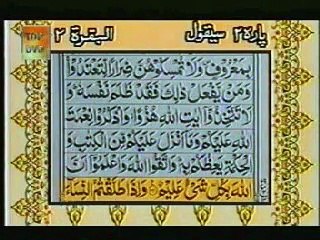 پارہ ۲ سیقول
البقرۃ ۲
بِمَعْرُوفٍ وَلَا تُمْسِكُوهُنَّ ضِرَارًا لِّتَعْتَدُوا
وَمَنْ يَّفْعَلْ ذٰلِكَ فَقَدْ ظَلَمَ نَفْسَهٗ وَ
لَا تَتَّخِذُوا اٰيٰتِ اللّٰهِ هُزُوًا وَّاذْكُرُوْا نِعْمَتَ
اللّٰهِ عَلَيْكُمْ وَمَا اَنْزَلَ عَلَيْكُمْ مِّنَ الْكِتٰبِ وَ
الْحِكْمَةِ يَعِظُكُمْ بِهٖ وَاتَّقُوا اللّٰهَ وَاعْلَمُوْا اَنَّ
اللّٰهَ بِكُلِّ شَيْءٍ عَلِيْمٌ وَاِذَا طَلَّقْتُمُ النِّسَآءَ